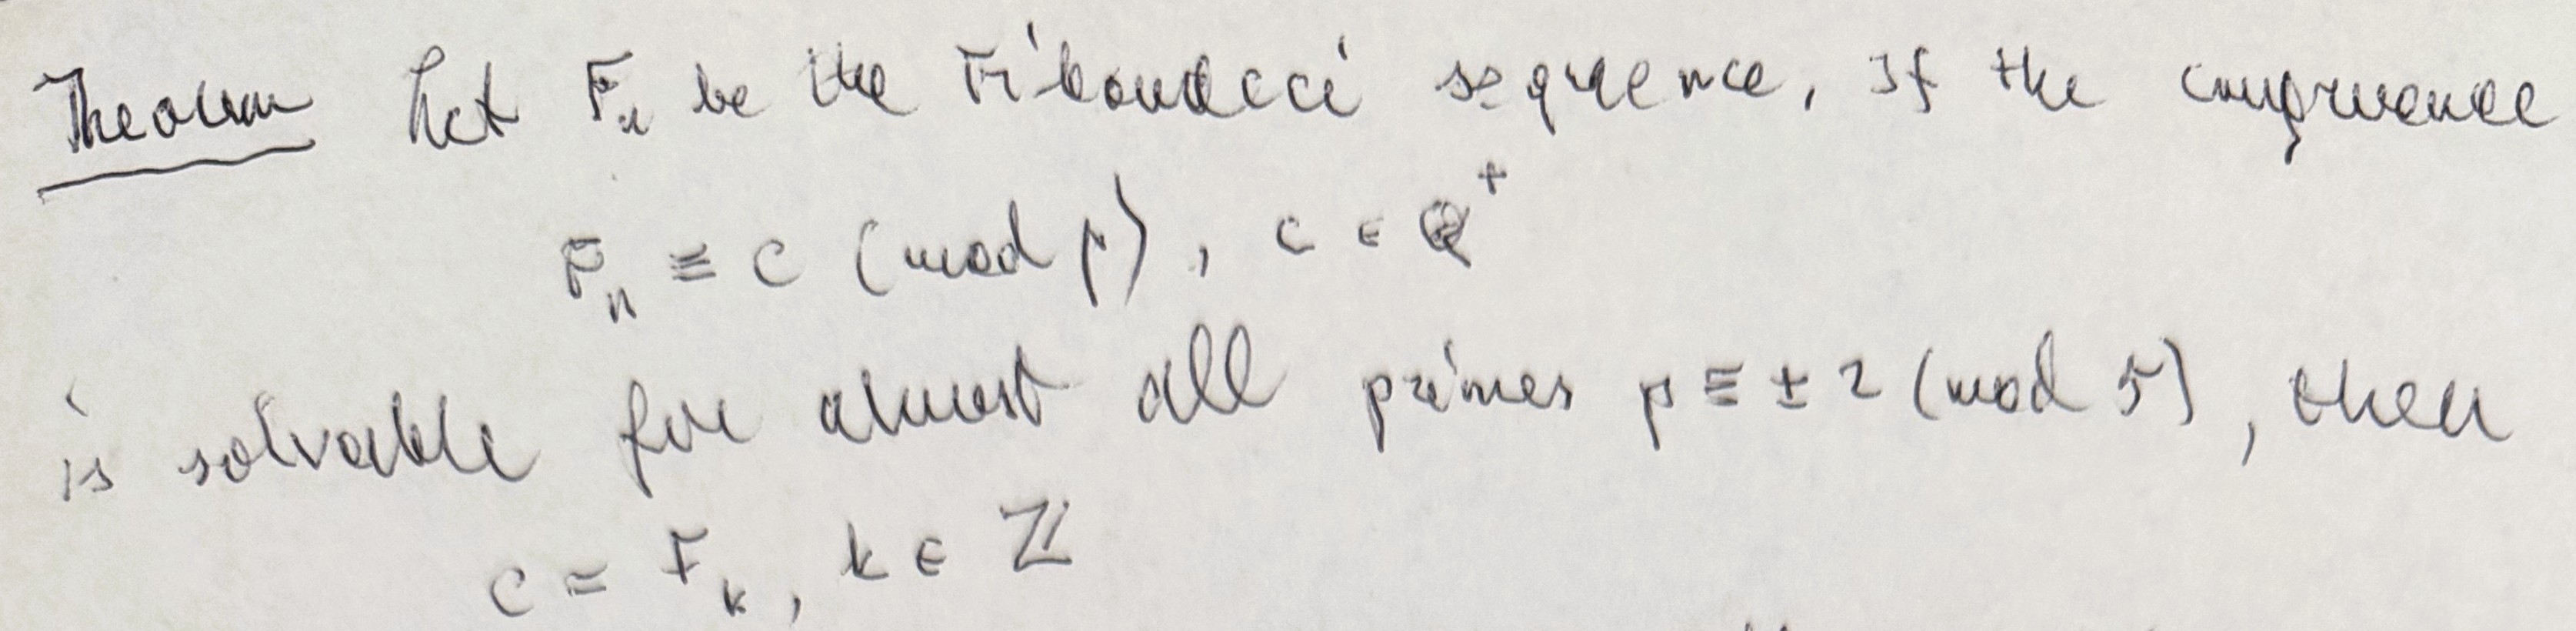 Theorem Let Fₙ be the Fibonacci sequence. If the congruence
Fₙ ≡ c (mod p), c ∈ ℚ⁺
is solvable for almost all primes p ≡ ± 2 (mod 5), then
c = Fₖ, k ∈ ℤ